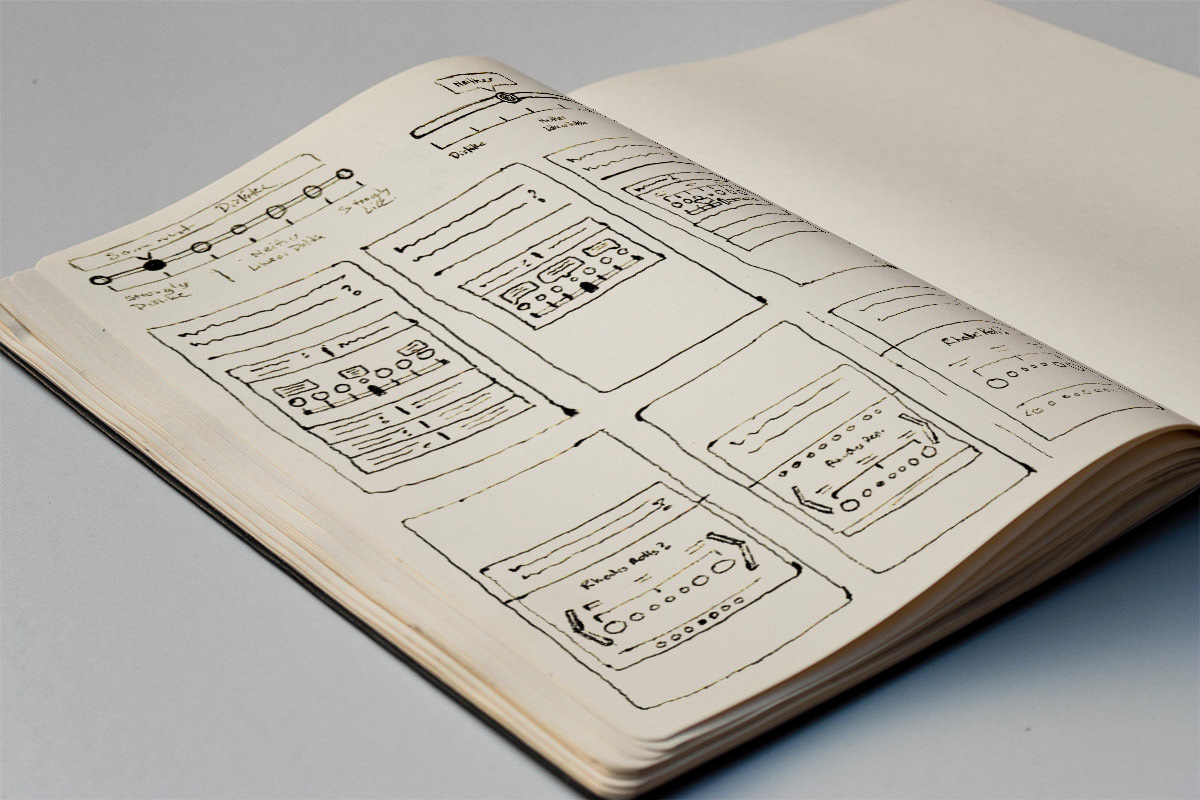 Neither
Dislike
Neither
Like or Dislike
Somewhat Dislike
Strongly
Dislike
Neither
Like or Dislike
Strongly
Like
?
?
Rhodes Rolls?
?
Rhodes Rolls?